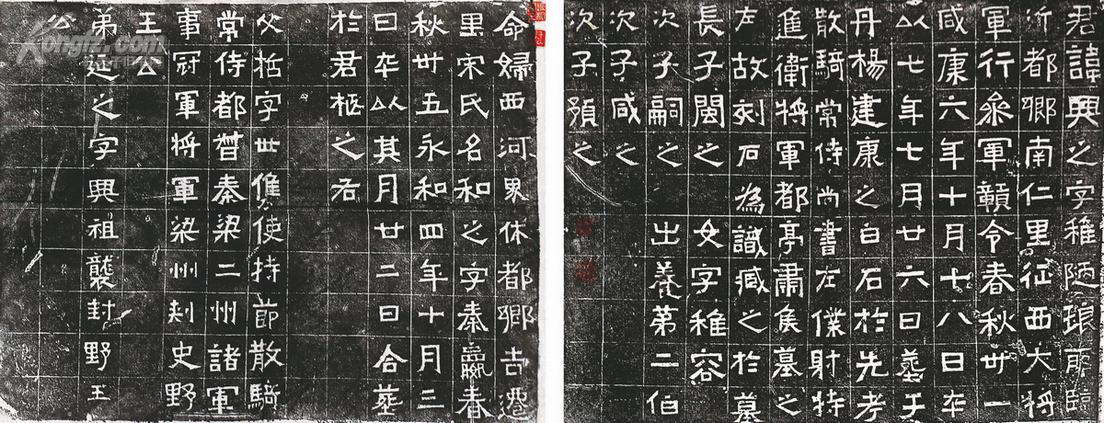 君諱興之字稚陋琅耶臨
沂都鄉南仁里征西大將
軍行參軍贛令春秋卅一
咸康六年十月十八日卒
以七年七月廿六日葬于
丹楊建康之白石於先考
散騎常侍尚書左僕射特
進衛將軍都亭肅侯墓之
左故刻石為識臧之於墓
長子閩之 女字稚容
次子嗣之 出養第二伯
次子咸之
次子預之
命婦西河界休都鄉吉遷
里宋氏名和之字秦嬴春
秋卅五永和四年十月三
日卒以其月廿二日合葬
於君柩之右
父哲字世儁使持節散騎
常侍都督秦梁二州諸軍
事冠軍將軍梁州刺史野
王公
弟延之字興祖襲封野王
公
Kongfz.com